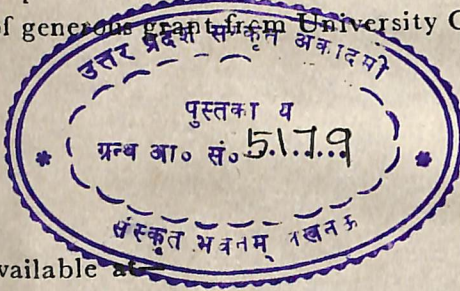 of generous grant from University
उत्तर प्रदेश संस्कृत अकादमी
पुस्तका य
ग्रन्थ आ० सं० 5179
संस्कृत भवनम्
available at—